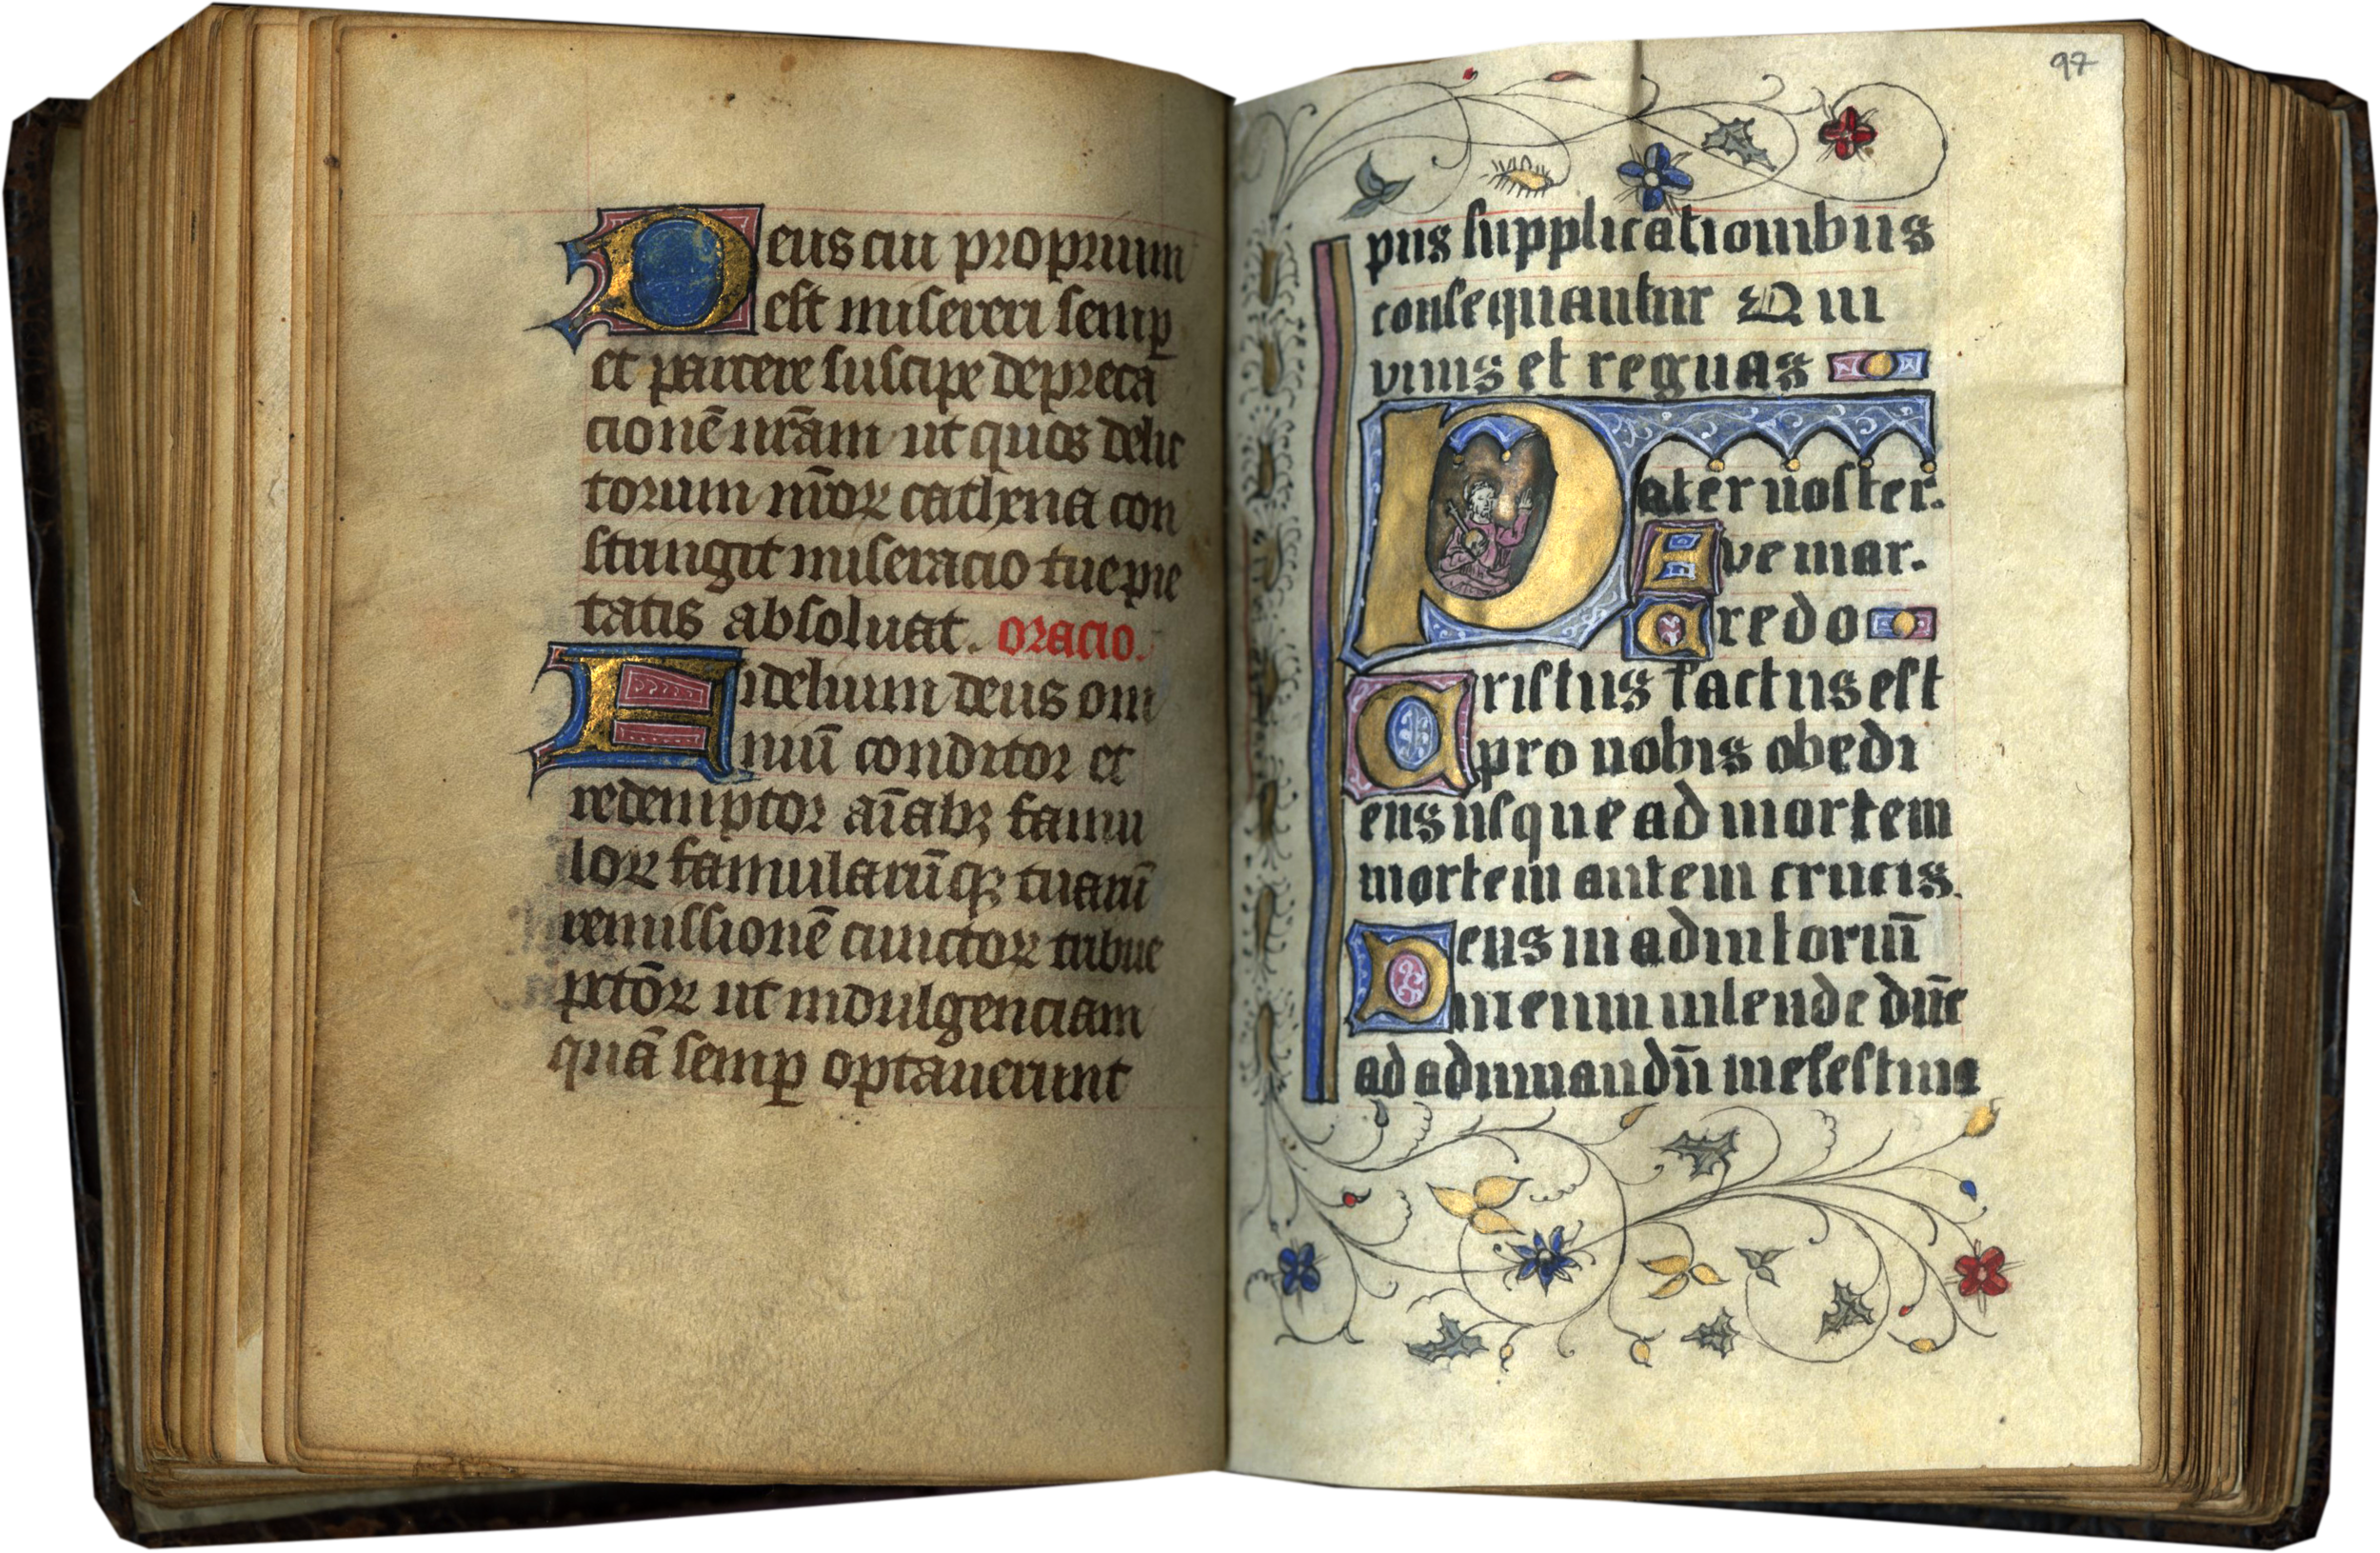 Deus cui proprium
est misereri semp
et parcere suscipe depreca
cionē nr̄am ut quos delic
torum nr̄oꝝ cathena con
stringit miseracio tue pie
tatis absoluat. oracio.
Fidelium deus om
niū conditor et
redemptor aīabꝫ famu
loꝝ famularūqꝫ tuarū
remissionē cunctoꝝ tribue
pctōꝝ ut indulgenciam
quā semp optauerunt
97
pus supplicationibus
consequantur Qui
viuis et regnas
Pater noster.
Ave mar.
Credo
Cristus factus est
pro nobis obedi
ens usque ad mortem
mortem autem crucis.
Deus in adiutoriū
meum intende dn̄e
ad adiuuandū me festina